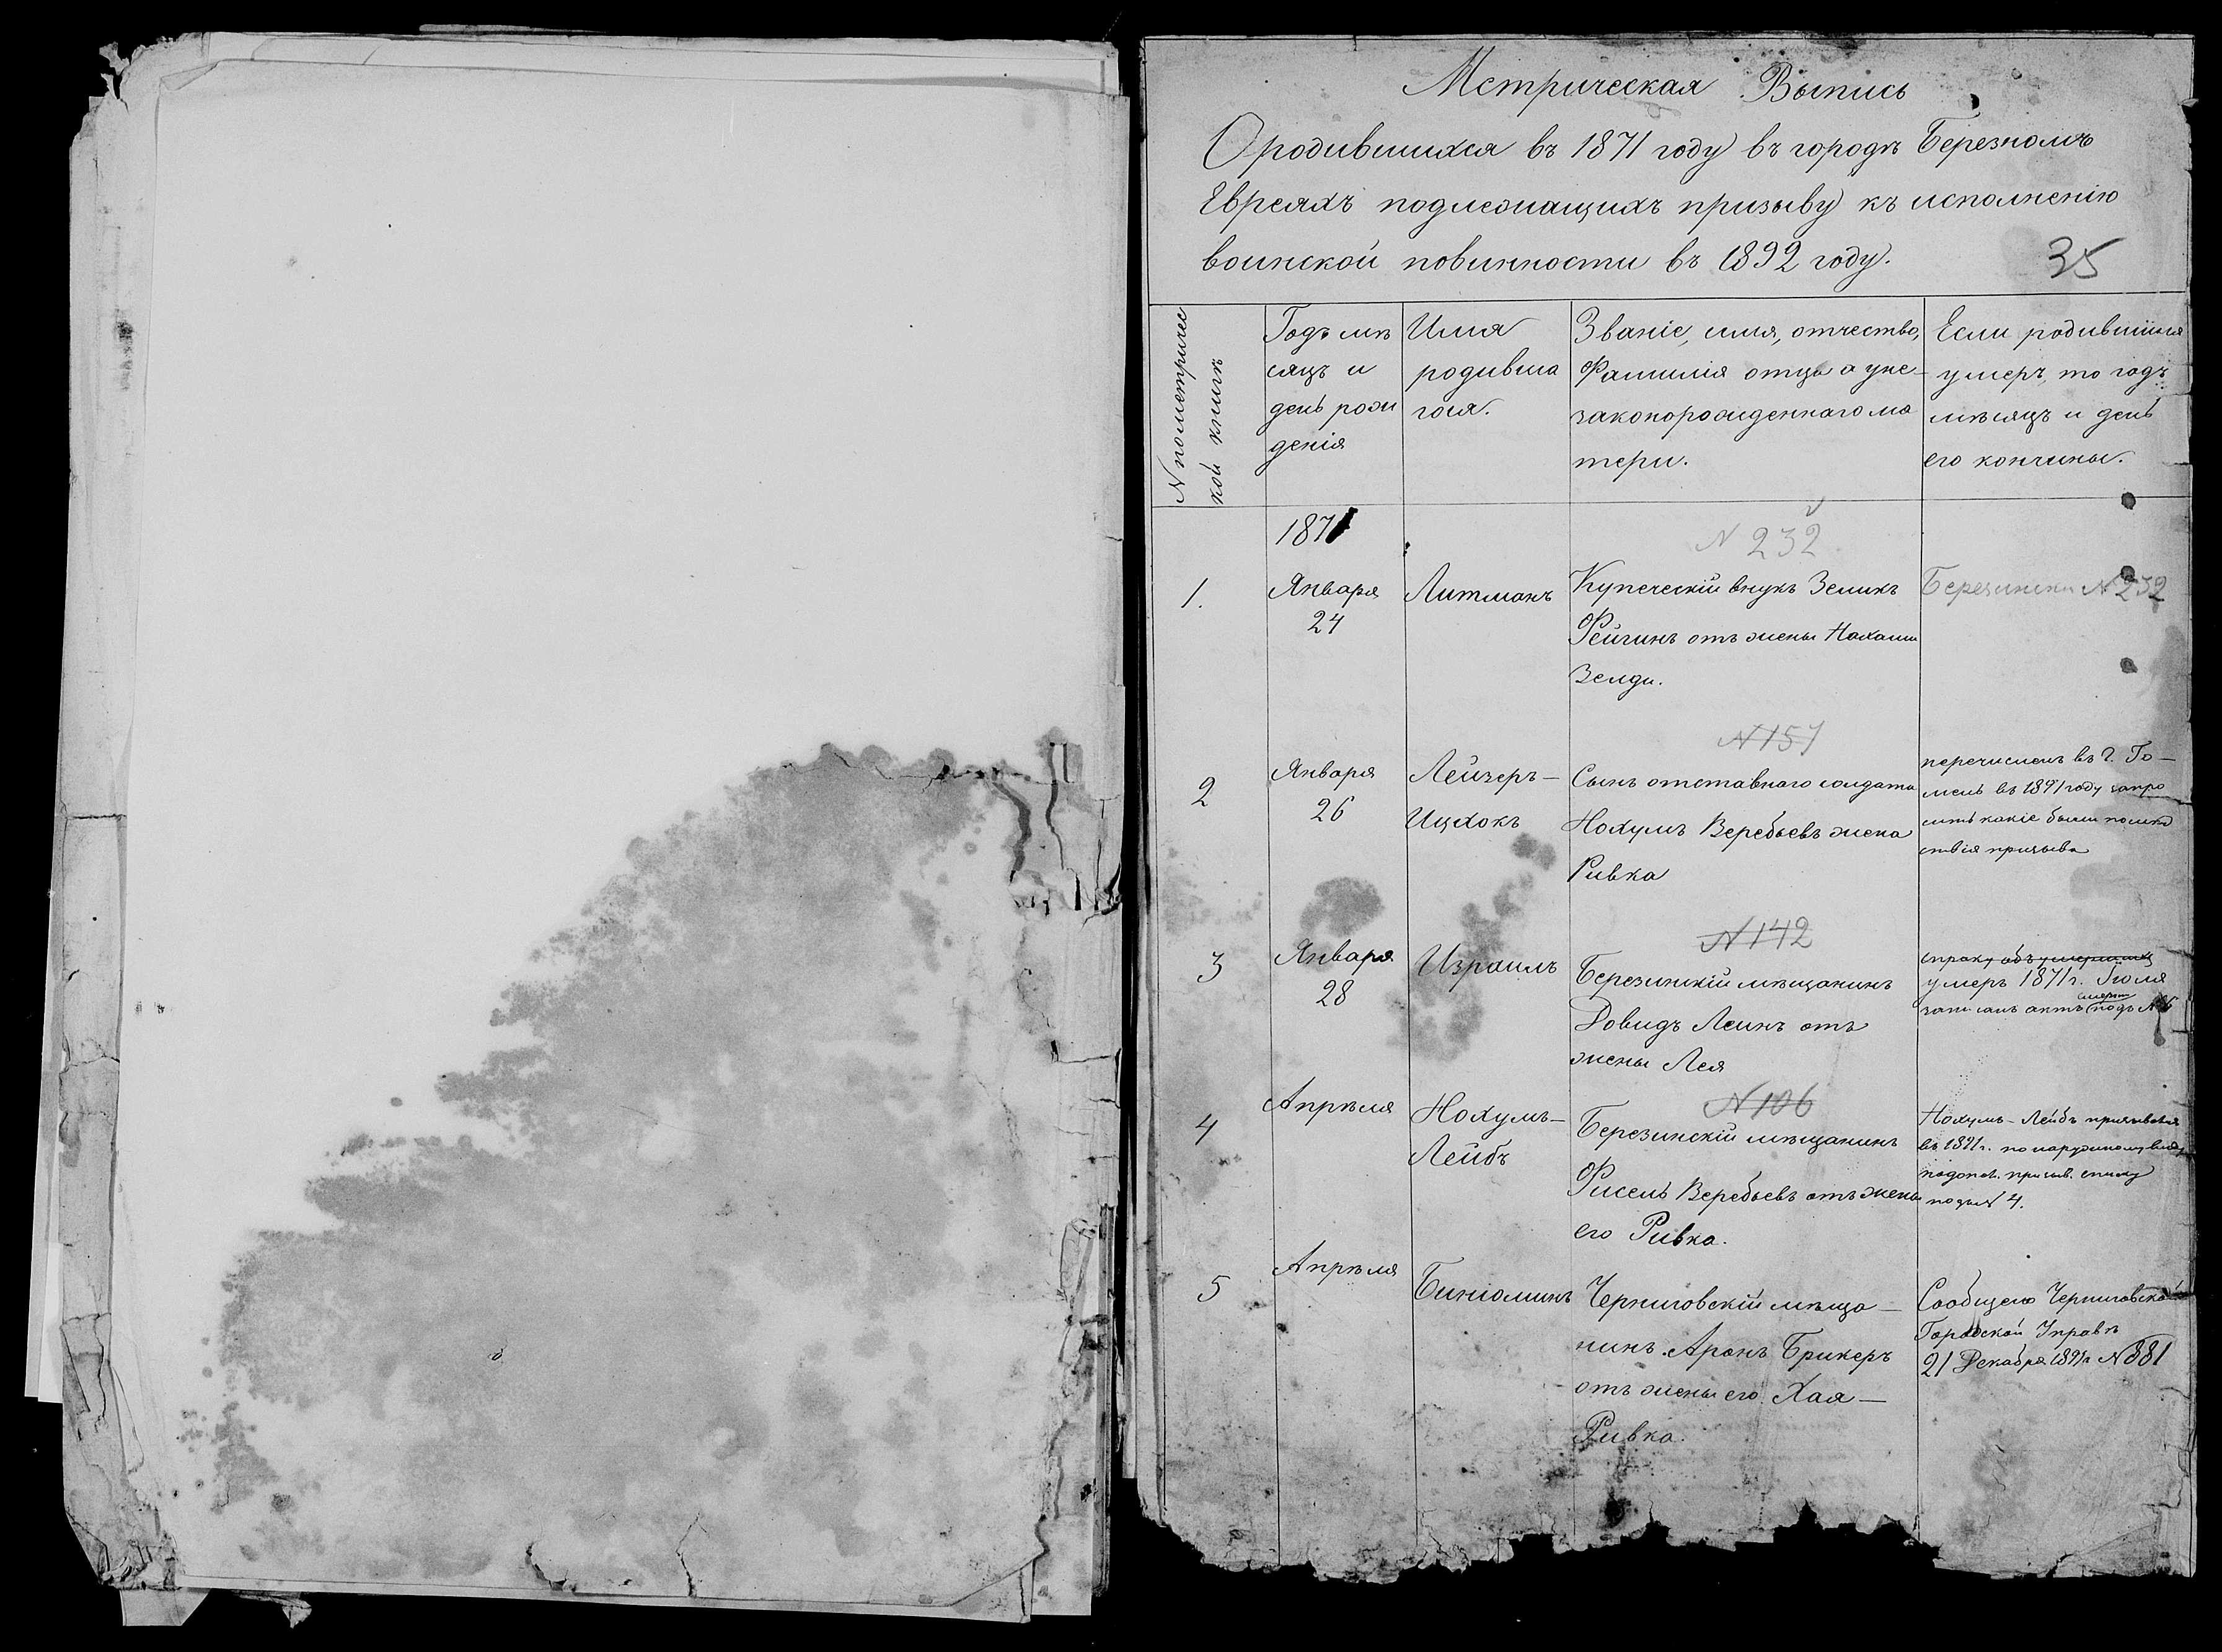 Метрическая Выпись
О родившихся въ 1871 году въ городѣ Березномъ
Евреяхъ подлежащихъ призыву къ исполненію
воинской повинности въ 1892 году.
35
N по метричес
кой книгѣ
Годъ мѣ
сяцъ и
день рож
денія
Имя
родивша
гося.
Званіе, имя, отчество,
Фамилія отца а у не-
законорожденнаго ма
тери.
Если родившійся
умеръ, то годъ
мѣсяцъ и день
его кончины.
1871
N 232
1.
Января
24
Литманъ
Купеческій внукъ Зеликъ
Фейгинъ отъ жены Нахами
Зелди.
N 232
N 157
2
Января
26
Лейзеръ-
Ицхокъ
Сынъ отставнаго солдата
Нохумъ Веребьевъ жена
Ривка
перечисленъ въ г. Го-
мель въ 1891 году запро
сить какіе были послѣд
ствія призыва
N 142
3
Января
28
Израиль
Березинскій мѣщанинъ
Довидъ Леинъ отъ
жены Лея
умеръ 1871 г. Іюля
записанъ актъ смерти подъ
N 106
4
Апрѣля
Нохумъ-
Лейбъ
Березинскій мѣщанинъ
Фисель Веребьевъ отъ жены
его Ривка.
Нохумъ-Лейбъ призывался
въ 1891 г. по наружному виду
призыв. списку
подъ N 4.
5
Апрѣля
Биніоминъ
Черниговскій мѣща-
нинъ Аронъ Брикеръ
отъ жены его Хая-
Ривка.
Сообщено Черниговской
Городской Управѣ
21 Декабря 1891 г. N 881